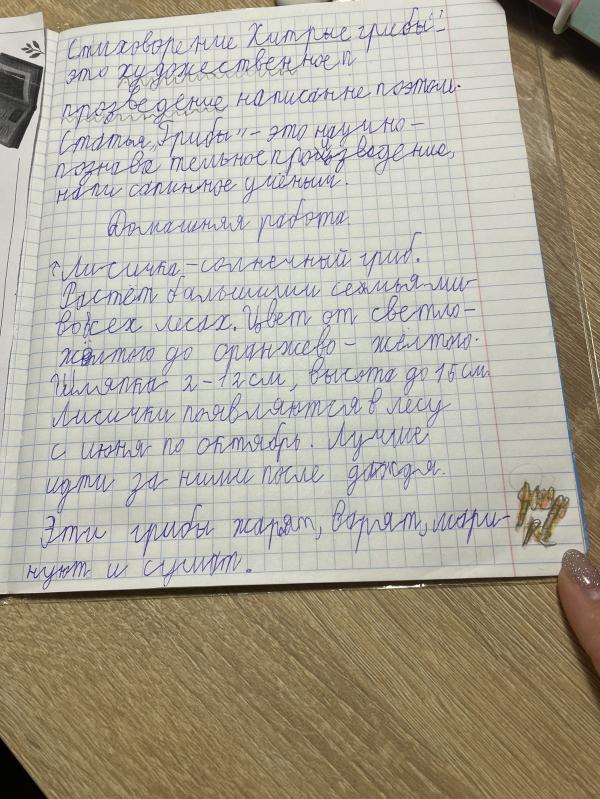 Стиховорение Хитрые грибы"-
это художественное п
прозведение написанне поэтом.
Статья "Грибы" - это научно-
познавательное произведение,
написапинное учёным.
Домашняя работа.
Лисичка - солнечный гриб.
Растёт большими семьями
во всех лесах. Цвет от светло-
жёлтого до оранжево - жёлтого.
Шляпка 2-12 см, высота до 15 см.
Лисички появляются в лесу
с июня по октябрь. Лучше
идти за ними после дождя.
Эти грибы жарят, варят, мари-
нуют и сушат.